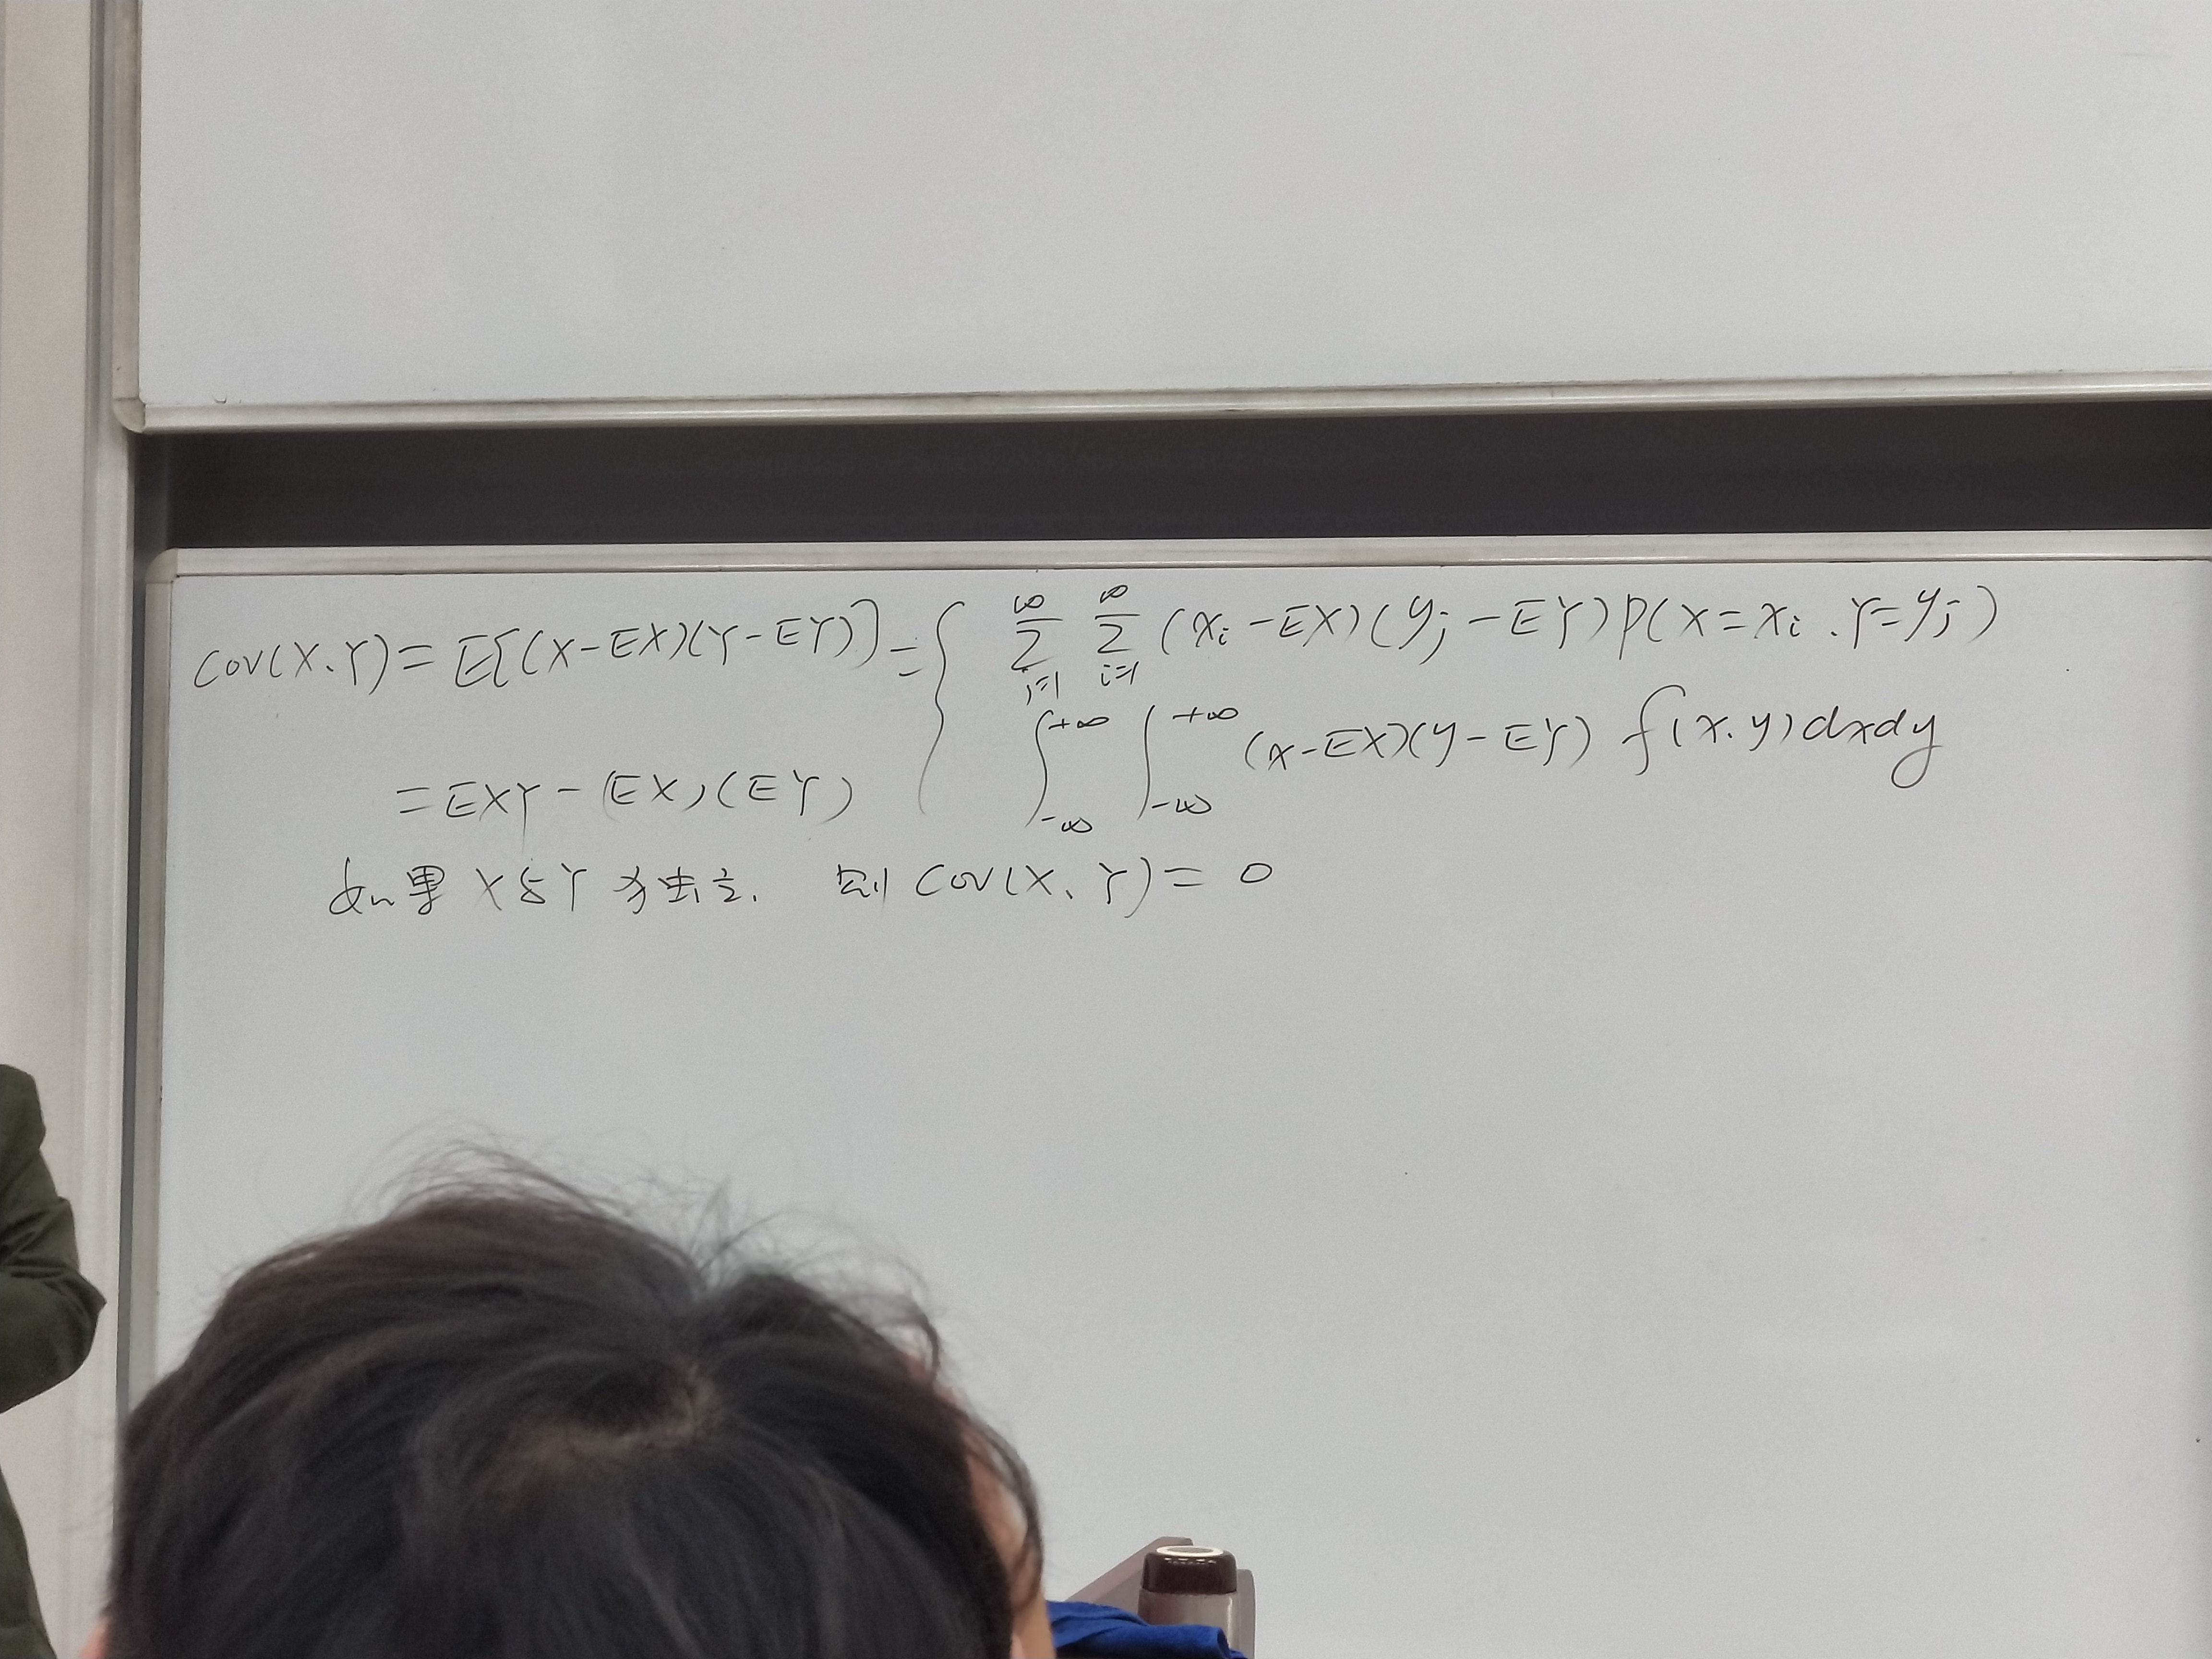 cov(X、Y) = E[(X-EX)(Y-EY)] = { ∞∑j=1 ∞∑i=1 (xi-EX)(yj-EY)P(X=xi、Y=yj)
∫+∞-∞ ∫+∞-∞ (x-EX)(y-EY) f(x、y)dxdy
=EXY-(EX)(EY)
如果X与Y独立. 则 cov(X、Y)= 0